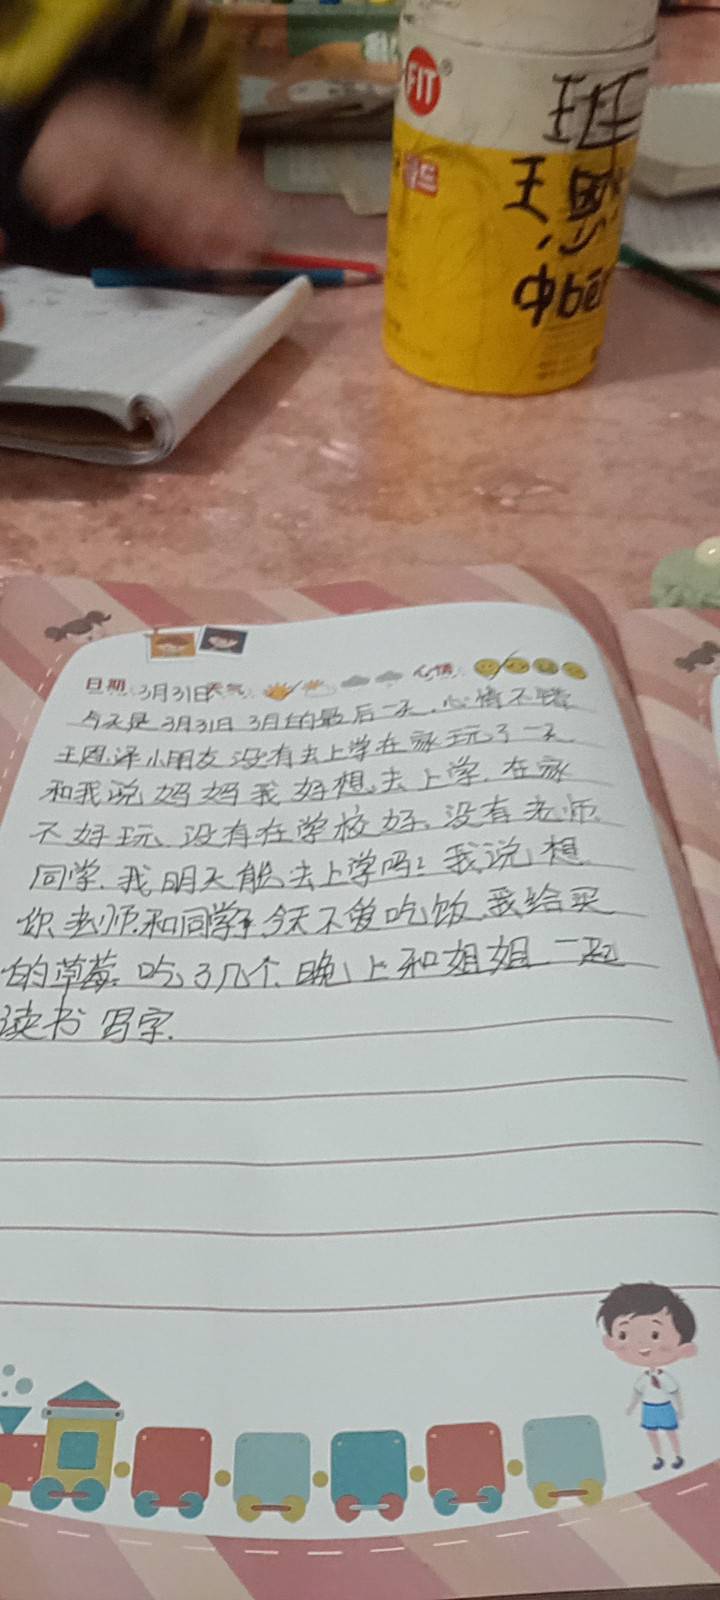 FIT
班
王恩
中
日期:3月31日 天气: 心情:
今天是3月31日 3月的最后一天,心情不错
王恩泽小朋友没有去上学在家玩了一天
和我说妈妈我好想去上学.在家
不好玩、没有在学校好、没有老师
同学.我明天能去上学吗?我说想
你老师和同学 今天不爱吃饭.我给买
的草莓.吃了几个.晚上和姐姐一起
读书写字.